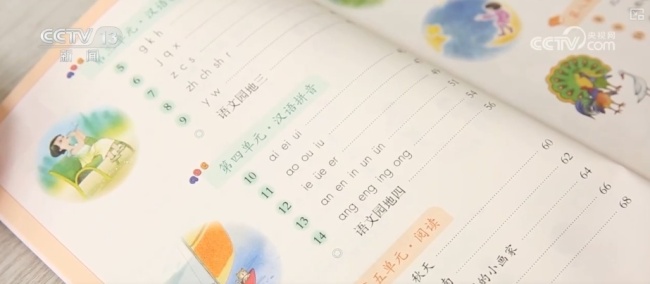 CCTV 13
新闻
央视网
CCTV.com
元·汉语
5 g k h
6 j q x
7 z c s
8 zh ch sh r
9 y w
语文园地三
第四单元·汉语拼音
10 ai ei ui
11 ao ou iu
12 ie üe er 54
13 an en in un ün 56
14 ang eng ing ong
语文园地四 60
五单元·阅读
秋天 62
64
的小画家 66
68